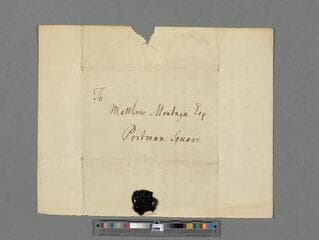 To
Matthew Montagu Esq
Portman Square